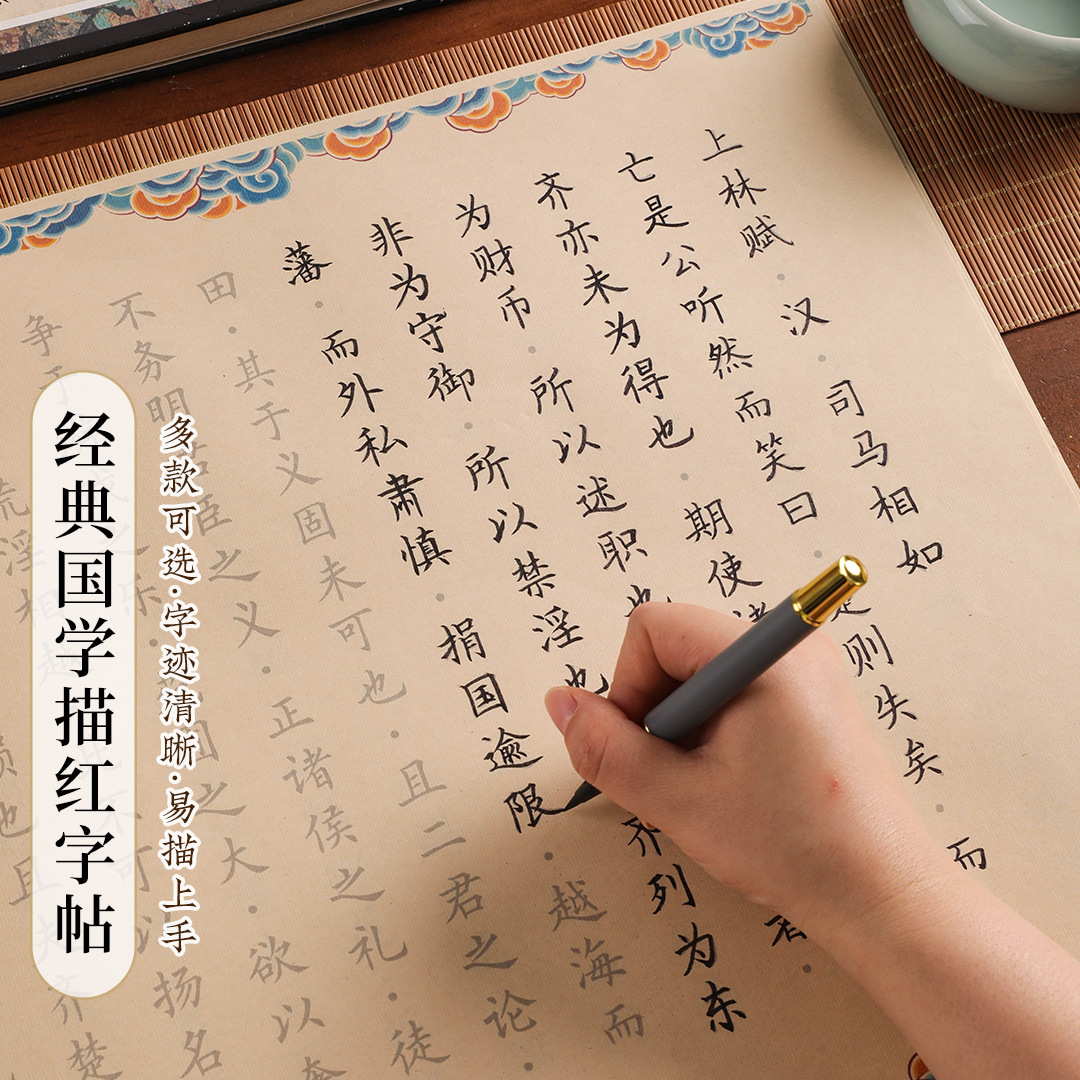 上林赋·汉·司马相如
亡是公听然而笑曰·则失矣·而
齐亦未为得也·期使诸者·
为财币·所以述职也
非为守御·所以禁淫也齐列为东
藩·而外私肃慎·捐国逾限·越海而
田·其于义固未可也·且二君之论·
不务明臣之义·正诸侯之礼·徒
争于之乐·囿之大·欲以奢
荒淫相越此不可以扬名
也且夫齐楚
经典国学描红字帖
多款可选·字迹清晰·易描上手